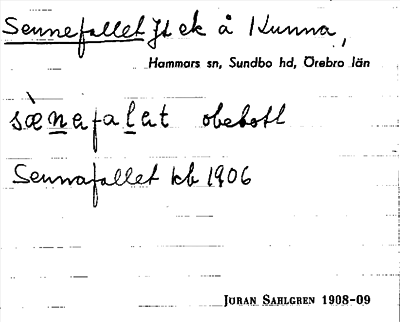 Sennefallet Jt ek å Kunna,
Hammars sn, Sundbo hd, Örebro län
sæ̀nefalet obebott
Sennafallet kb 1906
JÖRAN SAHLGREN 1908-09